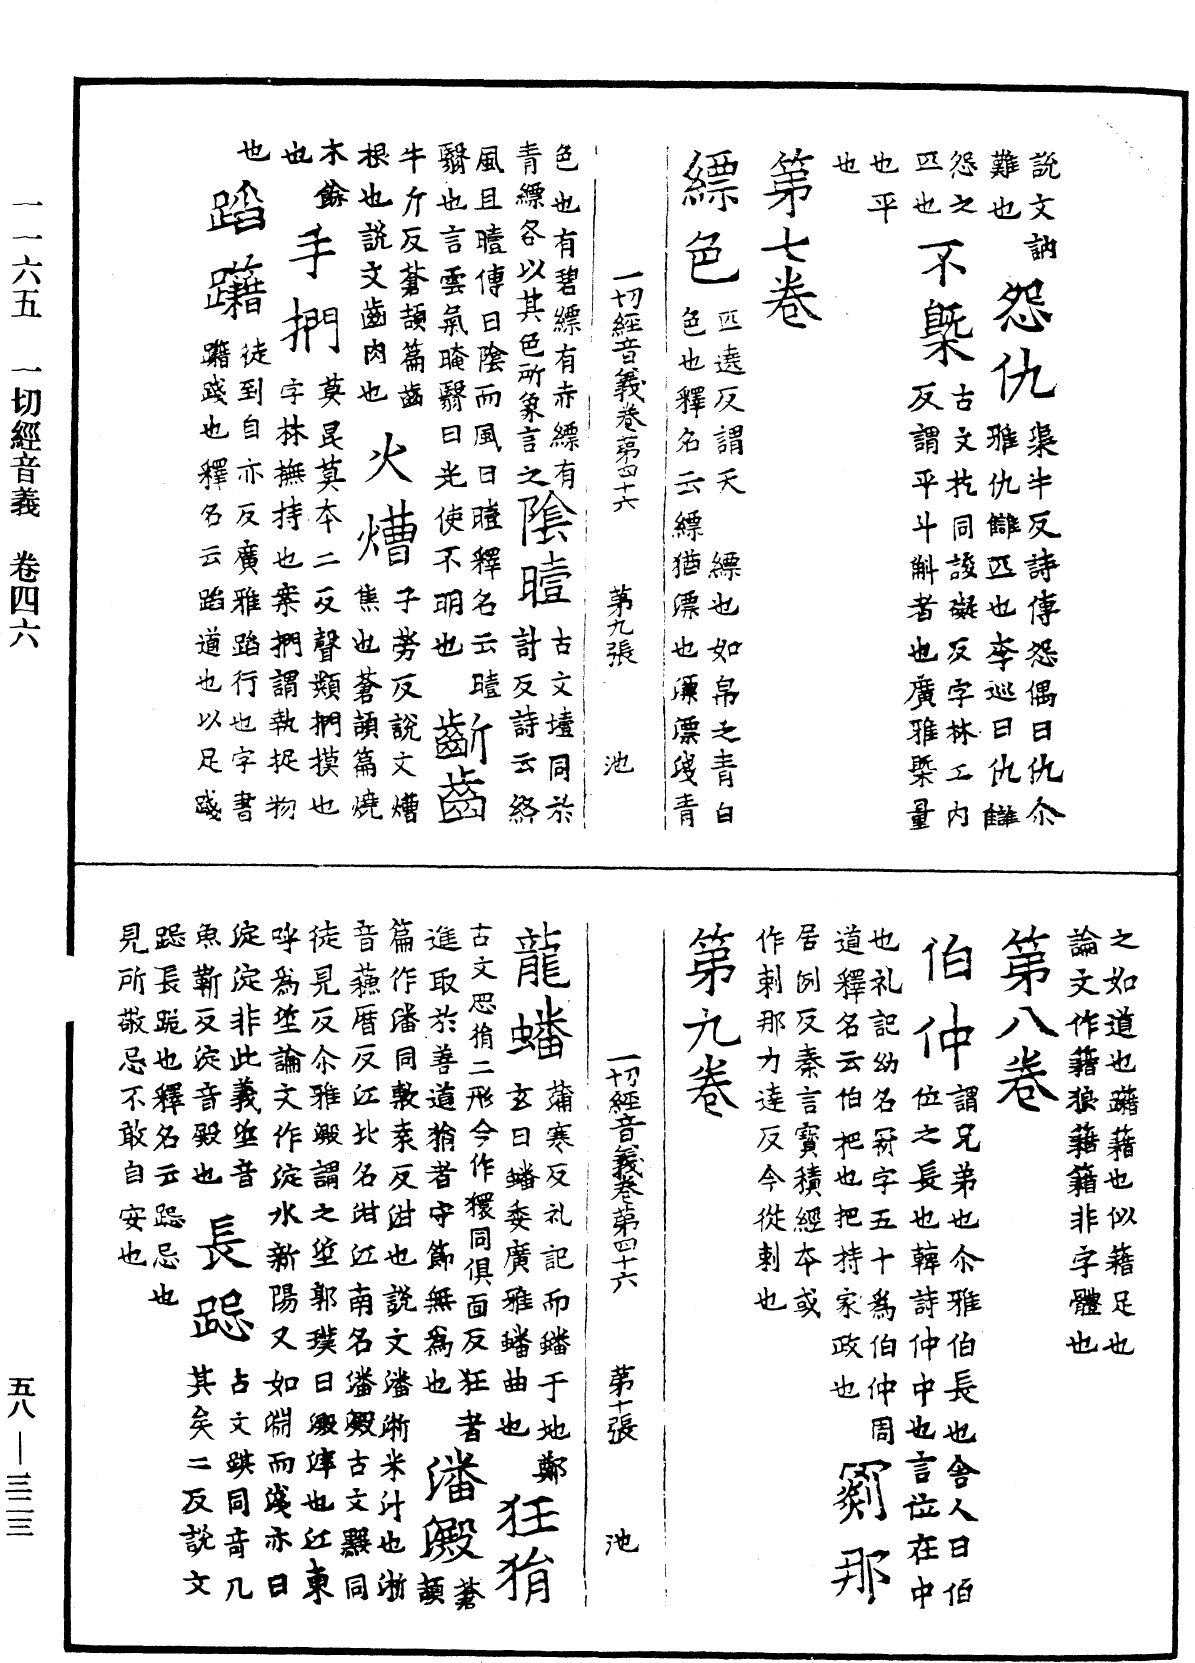 一一六五　一切經音義　卷四六
說文訥
難也
怨仇
渠牛反詩傳怨偶曰仇尒
雅仇讎匹也李巡曰仇讎
怨之
匹也
不槩
古文扢同該礙反字林工內
反謂平斗斛者也廣雅槩量
也平
也
第七卷
縹色
匹遶反謂天　縹也如帛之青白
色也釋名云縹猶漂也漂漂淺青
一切經音義卷第四十六　第九張　池
色也有碧縹有赤縹有
青縹各以其色所象言之
陰曀
古文壇同於
計反詩云終
風且曀傳曰陰而風曰曀釋名云曀
翳也言雲氣晻翳日光使不明也
齗齒
牛斤反蒼頡篇齒
根也說文齒肉也
火燶
子勞反說文燶
焦也蒼頡篇燒
木餘
也
手捫
莫昆莫本二反聲類捫摸也
字林撫持也案捫謂執捉物
也
蹈躤
徒到自亦反廣雅蹈行也字書
躤踐也釋名云蹈道也以足踐
之如道也躤藉也似藉足也
論文作藉狼藉籍非字體也
第八卷
伯仲
謂兄弟也尒雅伯長也舍人曰伯
位之長也韓詩仲中也言位在中
也礼記幼名冠字五十為伯仲周
道釋名云伯把也把持家政也
罽那
居例反秦言寶積經本或
作剌那力達反今從剌也
第九卷
一切經音義卷第四十六　第十張　池
龍蟠
蒲寒反礼記而蟠于地鄭
玄曰蟠委廣雅蟠曲也
狂狷
古文悁狷二形今作獧同俱面反狂者
進取於善道狷者守節無為也
潘澱
蒼
頡
篇作潘同敷袁反泔也說文潘淅米汁也浙
音蘇曆反江北名泔江南名潘澱古文㸃同
徒見反尒雅澱謂之垽郭璞曰澱滓也江東
呼為垽論文作淀水新陽又如淵而淺亦曰
淀淀非此義垽音
魚靳反淀音殿也
長跽
古文踑同奇几
其矣二反說文
跽長跪也釋名云跽忌也
見所敬忌不敢自安也
五八—三二三